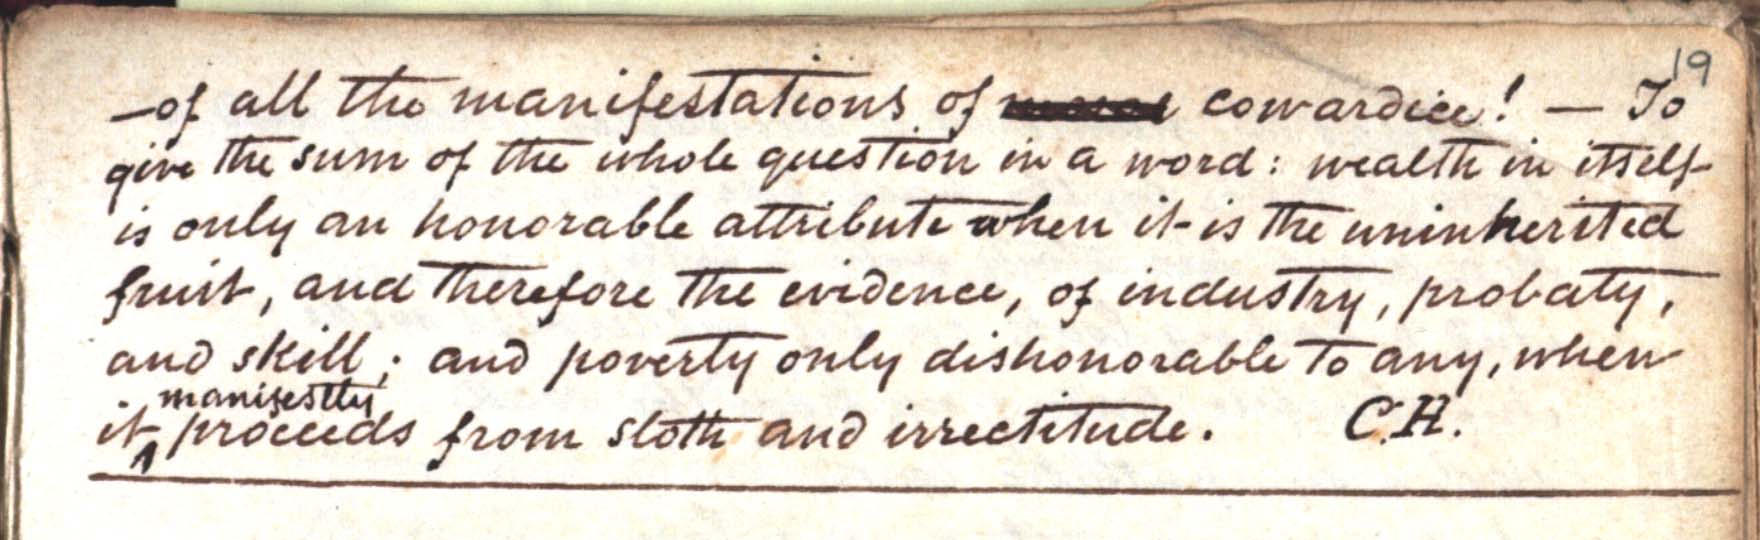 19
—of all the manifestations of cowardice! — To
give the sum of the whole question in a word: wealth in itself
is only an honorable attribute when it is the uninherited
fruit, and therefore the evidence, of industry, probaty,
and skill; and poverty only dishonorable to any, when
manifestly
it proceeds from sloth and irrectitude. C.H.